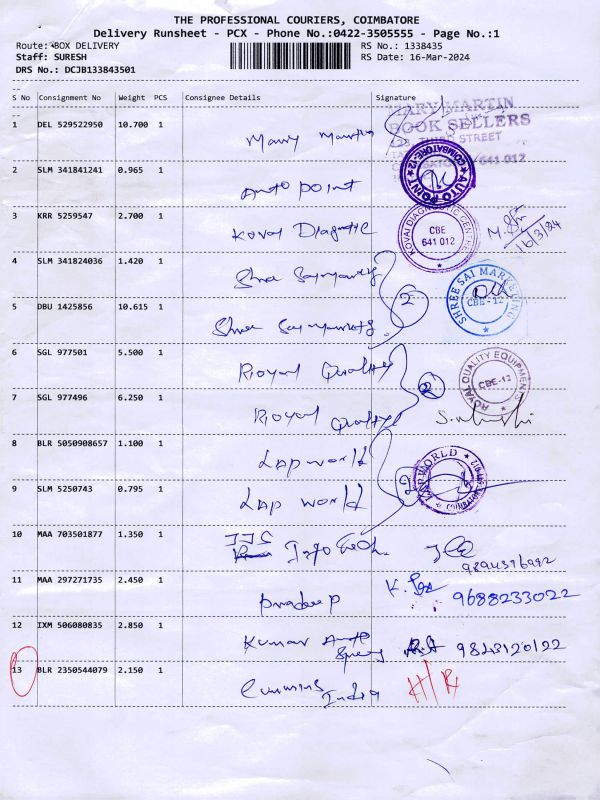 THE PROFESSIONAL COURIERS, COIMBATORE
Delivery Runsheet - PCX - Phone No.:0422-3505555 - Page No.:1
Route: BOX DELIVERY RS No.: 1338435
Staff: SURESH RS Date: 16-Mar-2024
DRS No.: DCJB133843501
S No Consignment No Weight PCS Consignee Details Signature
1 DEL 529522950 10.700 1 Mary Martin
MARY MARTIN
BOOK SELLERS
THIRD STREET
COIMBATORE - 641 012
2 SLM 341841241 0.965 1 Auto point
AUTO POINT ★ COIMBATORE-12 ★
3 KRR 5259547 2.700 1 Kovai Diagnostic
KOVAI DIAGNOSTIC CENTRE
CBE
641 012
16/3/24
4 SLM 341824036 1.420 1 Shree
2
SHREE SAI MARKETING
CBE-12
5 DBU 1425856 10.615 1 Shree
6 SGL 977501 5.500 1 Royal Quality
2
ROYAL QUALITY EQUIPMENTS
CBE-12
7 SGL 977496 6.250 1 Royal Quality
8 BLR 5050908657 1.100 1 Lap world
2
LAP WORLD
9 SLM 5250743 0.795 1 Lap world
10 MAA 703501877 1.350 1 Info Tech.
11 MAA 297271735 2.450 1 pradeep 9688233022
12 IXM 506080835 2.850 1 Kumar Auto 9843120122
13 BLR 2350544079 2.150 1 Cummins India H/R